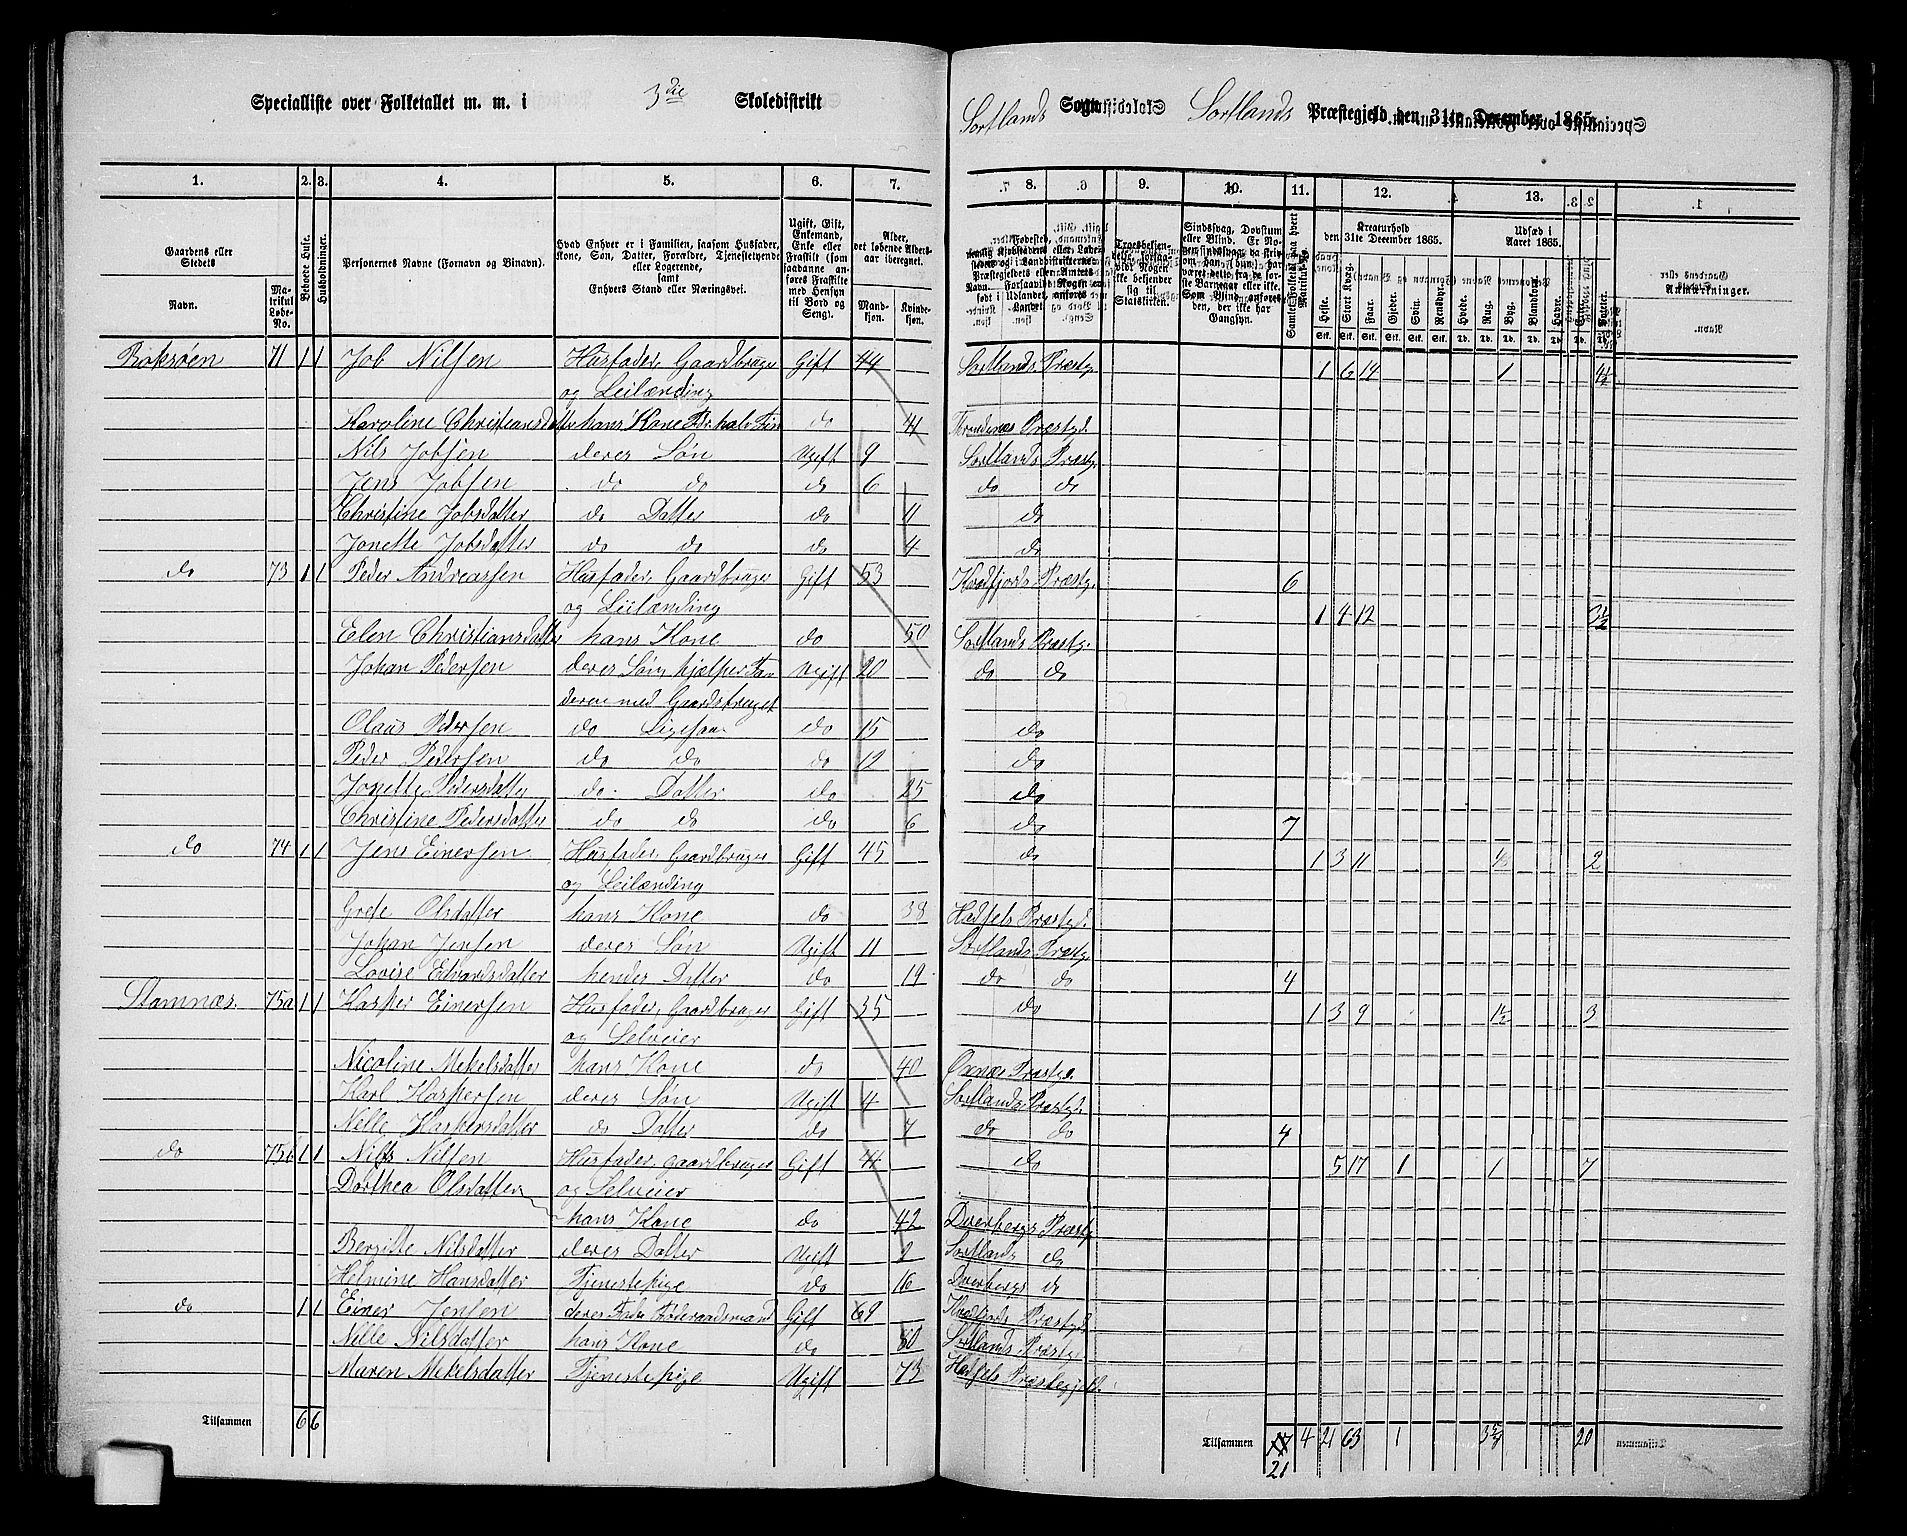 Specialliste over Folketallet m. m. i 3die Skoledistrikt
Sortlands Sogn Sortlands Præstegjeld den 31te December 1865.
1. 2. 3. 4. 5. 6. 7.
Gaardens eller Stedets Navn. Matrikul Løbe-No. Beboede Huse. Husholdninger. Personernes Navne (Fornavn og Binavn). Hvad Enhver er i Familien, saasom Husfader, Kone, Søn, Datter, Forældre, Tjenestetyende eller Logerende, samt Enhvers Stand eller Næringsvei. Ugift, Gift, Enkemand, Enke eller Fraskilt (som saadanne anføres Fraskilte med Hensyn til Bord og Seng). Alder, det løbende Aldersaar iberegnet. Mandkjøn. Kvindekjøn.
8. 9. 10. 11. 12. 13.
Sindssvag, Døvstum eller Blind. Kreaturhold den 31te December 1865. Udsæd i Aaret 1865. Anmærkninger.
Heste. Stort Kvæg. Faar. Gjeder. Svin. Rensdyr. Hvede. Rug. Byg. Blandkorn. Havre. Erter. Poteter.
71 1 1 Job Nilsen Husfader, Gaardbruger Gift 44 Sortlands Præstg. 1 6 14 1
og Leilænding
Karoline Christiansdatter hans Kone do 41 Præstgd.
Nils Jobsen deres Søn Ugift 9 Sortlands Præstg.
Jens Jobsen do do do 6 do do
Christine Jobsdatter do Datter do 11 do
Jonette Jobsdatter do do do 4 do
do 73 1 1 Peder Andreassen Husfader, Gaardbruger Gift 53 Kvæfjords Præstg. 6
og Leilænding 1 4 12 3½
Elen Christiansdatter hans Kone do 50 Sortlands Præstg.
Johan Pedersen deres Søn, hjælper Faderen Ugift 20 do do
med Gaardsbruget
Olaus Pedersen do Ligesaa do 15 do
Peder Pedersen do do do 12 do
Jonette Pedersdatter do Datter do 25 do
Christine Pedersdatter do do do 6 do 7
do 74 1 1 Jens Einersen Husfader, Gaardbruger Gift 45 do 1 3 11 ½ 2
og Leilænding
Grete Olsdatter hans Kone do 38 Hadsels Præstgd.
Johan Jensen deres Søn Ugift 11 Sortlands Præstg.
Lovise Edvardsdatter hendes Datter do 19 do do 4
Stamnæs. 75a 1 1 Kasper Einersen Husfader, Gaardbruger Gift 35 do 1 3 9 1½ 3
og Selveier
Nicoline Mekelsdatter hans Kone do 40 Øxnæs Præstgd.
Karl Kaspersen deres Søn Ugift 4 Sortlands Præstgd.
Nelle Kaspersdatter do Datter do 7 do do 4
do 75b 1 1 Nils Nilsen Husfader, gaardbruger Gift 41 do 5 17 1 1 7
Dorthea Olsdatter og Selveier
hans Kone do 42 Dverbergs Præstg.
Bergitte Nilsdatter deres Datter Ugift 2 Sortlands do
Helmine Hansdatter Tjenestepige do 16 Dverbergs do
do 1 1 Einer Jensen deres Føderaadsmand Gift 69 Kvæfjords Præstgd.
Nelle Nilsdatter hans Kone do 80 Sortlands Præstg.
Maren Mekelsdatter Tjenestepige Ugift 73 Hadsels Præstegjeld.
Tilsammen 6 6
Tilsammen 4 21 63 1 20
21